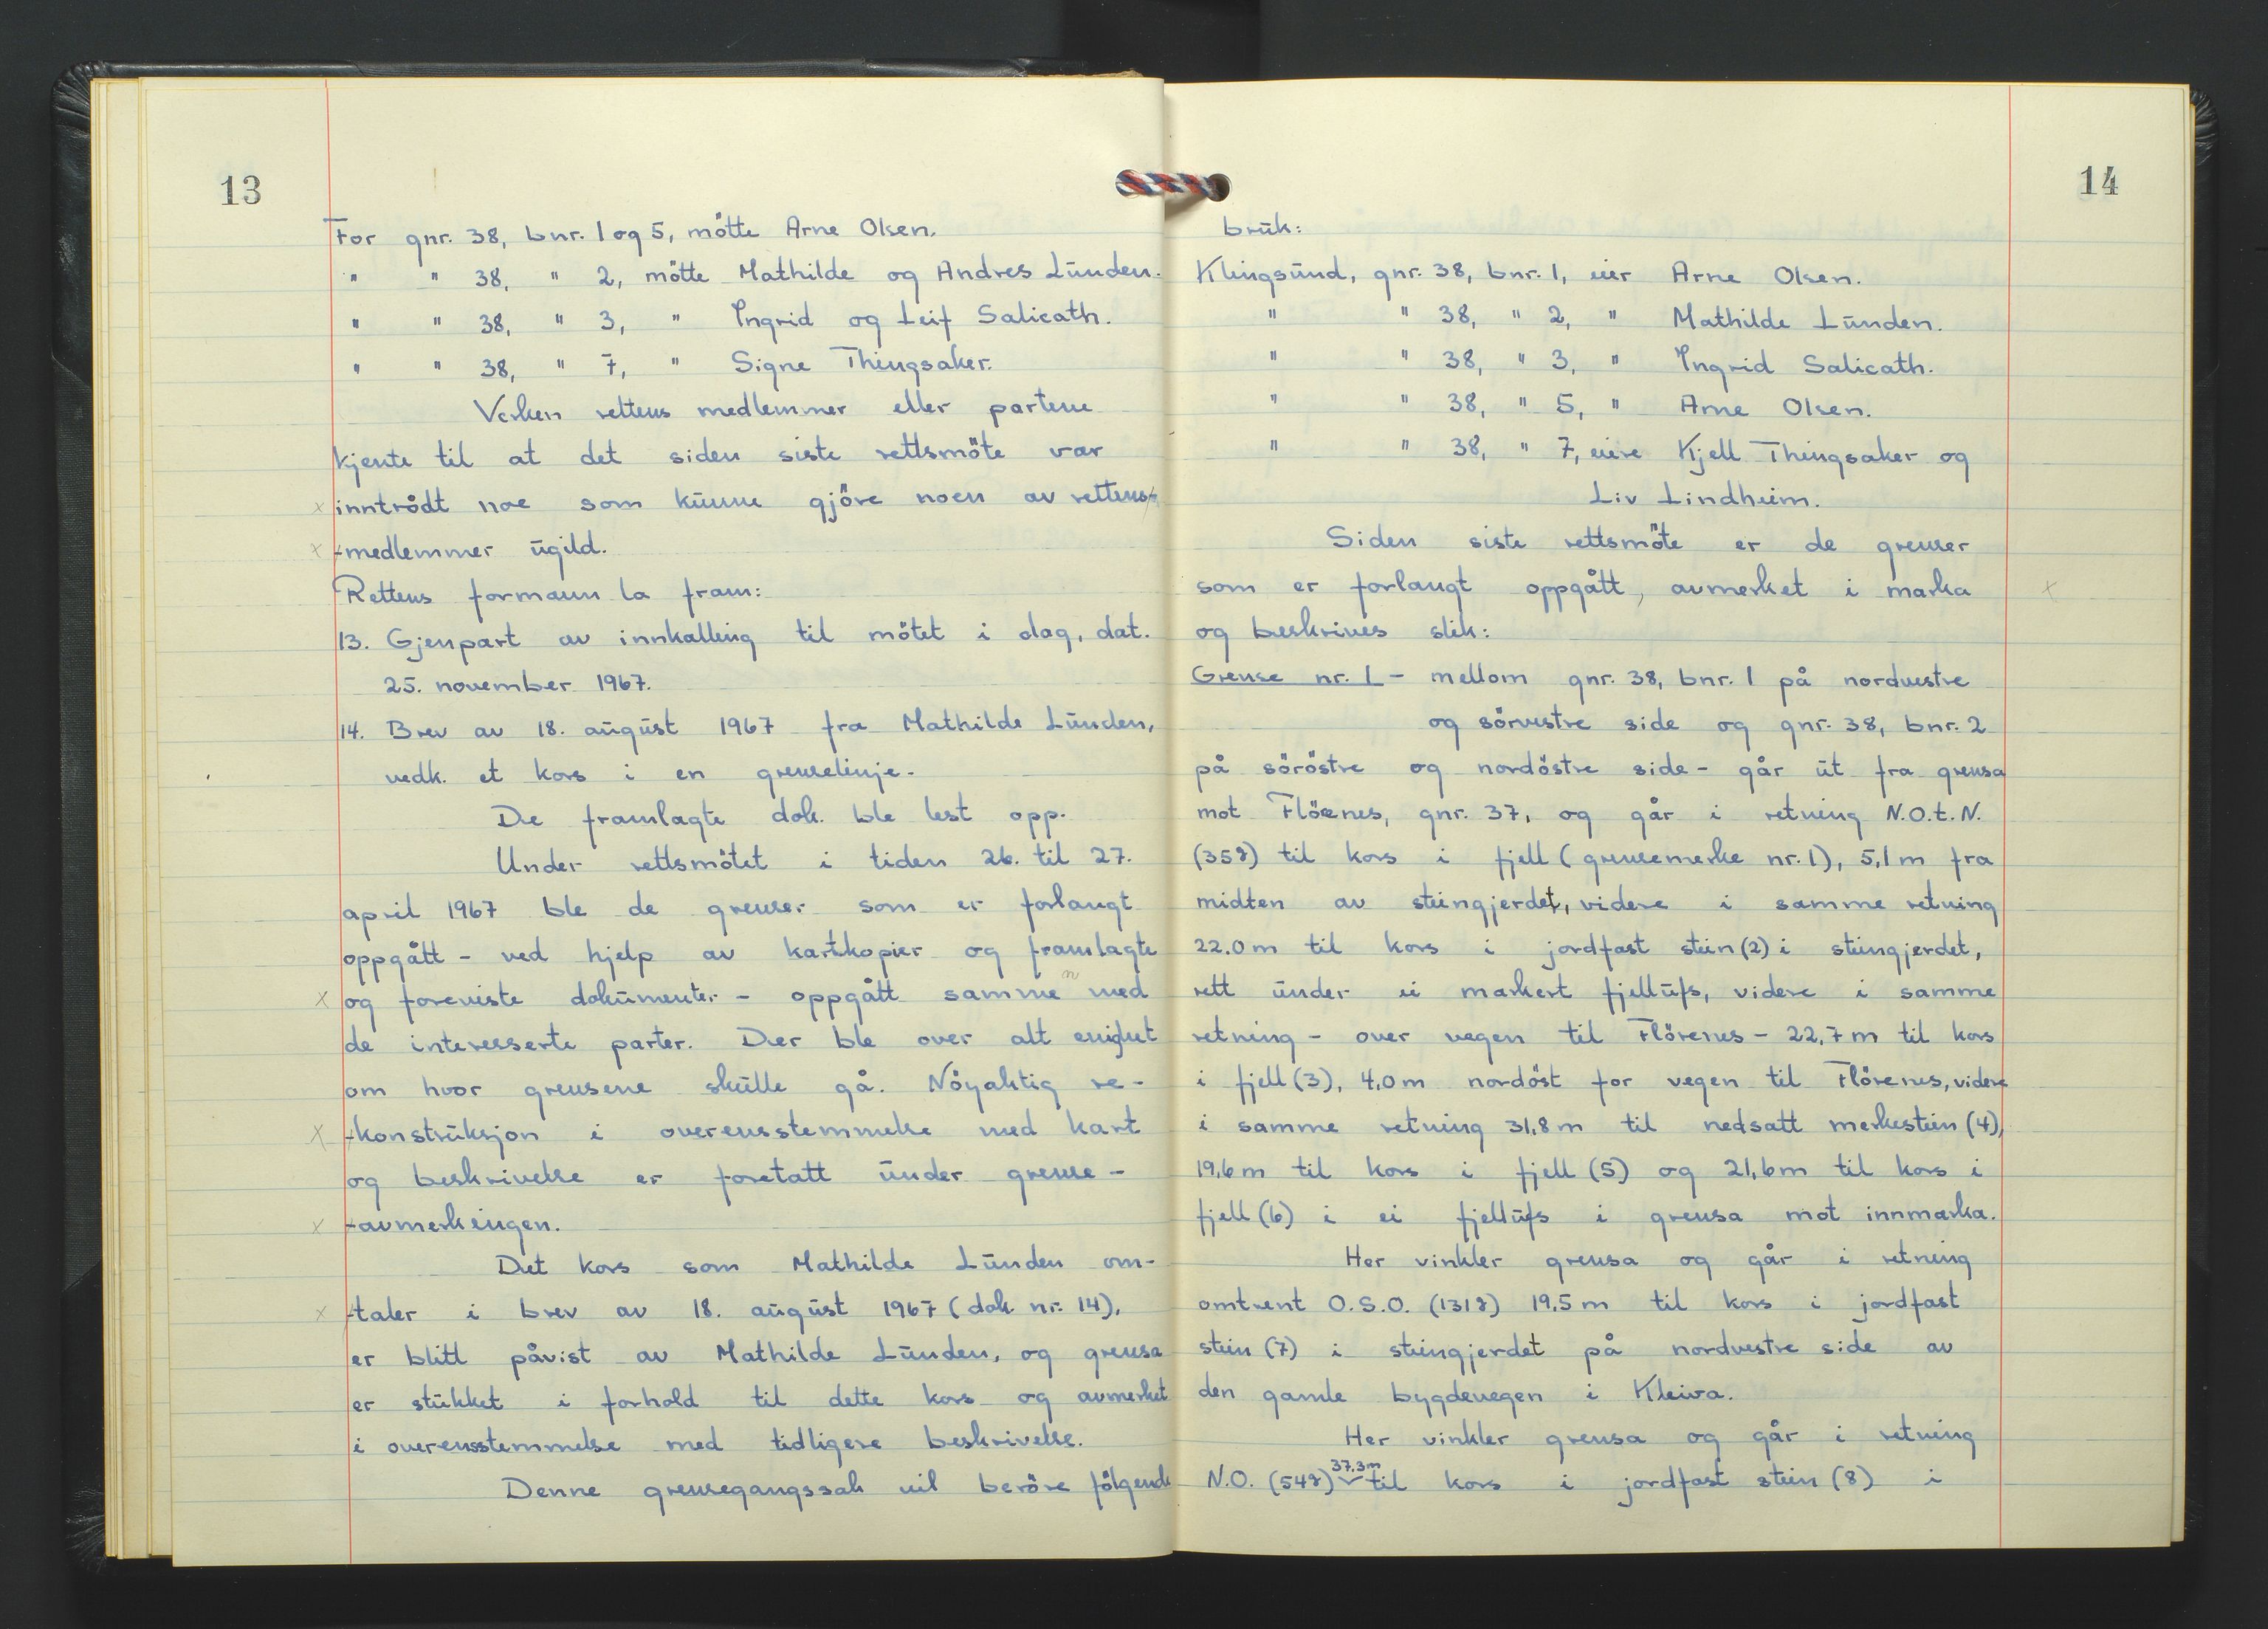 13
For gnr. 38, bnr. 1 og 5, mötte Arne Olsen.
" " 38, " 2, mötte Mathilde og Andres Lunden.
" " 38, " 3, " Ingrid og Leif Salicath.
" " 38, " 7, " Signe Thingsaker.
Verken rettens medlemmer eller partene
kjente til at det siden siste rettsmöte var
x inntrådt noe som kunne gjöre noen av rettens-
x -medlemmer ugild.
Rettens formann la fram:
13. Gjenpart av innkalling til mötet i dag, dat.
25. november 1967.
14. Brev av 18. august 1967 fra Mathilde Lunden,
vedk. et kors i en grenselinje.
De framlagte dok. ble lest opp.
Under rettsmötet i tiden 26. til 27.
april 1967 ble de grenser som er forlangt
oppgått - ved hjelp av kartkopier og framlagte
x og foreviste dokumenter - oppgått samme n med
de interesserte parter. Der ble over alt enighet
om hvor grensene skulle gå. Nöyaktig re-
x -konstruksjon i overensstemmelse med kart
og beskrivelse er foretatt under grense-
x -avmerkingen.
Det kors som Mathilde Lunden om-
x -taler i brev av 18. august 1967 (dok nr. 14),
er blitt påvist av Mathilde Lunden, og grensa
er stukket i forhold til dette kors og avmerket
i overensstemmelse med tidligere beskrivelse.
Denne grensegangssak vil beröre fölgende
14
bruk:
Klingsund, gnr. 38, bnr. 1, eier Arne Olsen.
" " 38, " 2, " Mathilde Lunden.
" " 38, " 3, " Ingrid Salicath.
" " 38, " 5, " Arne Olsen.
" " 38, " 7, eiere Kjell Thingsaker og
Liv Lindheim.
Siden siste rettsmöte er de grenser
som er forlangt oppgått, avmerket i marka x
og beskrives slik:
Grense nr. 1 - mellom gnr. 38, bnr. 1 på nordvestre
og sörvestre side og gnr. 38, bnr. 2
på söröstre og nordöstre side - går ut fra grensa
mot Flörenes, gnr. 37, og går i retning N.O.t.N.
(35g) til kors i fjell (grensemerke nr. 1), 5,1 m fra
midten av steingjerdet, videre i samme retning
22.0 m til kors i jordfast stein (2) i steingjerdet,
rett under ei markert fjellufs, videre i samme
retning - over vegen til Flörenes - 22,7 m til kors
i fjell (3), 4,0 m nordöst for vegen til Flörenes, videre
i samme retning 31,8 m til nedsatt merkestein (4),
19,6 m til kors i fjell (5) og 21,6 m til kors i
fjell (6) i ei fjellufs i grensa mot innmarka.
Her vinkler grensa og går i retning
omtrent O.S.O. (131g) 19,5 m til kors i jordfast
stein (7) i steingjerdet på nordvestre side av
den gamle bygdevegen i Kleiva.
Her vinkler grensa og går i retning
N.O. (54g) 37,3 m til kors i jordfast stein (8) i